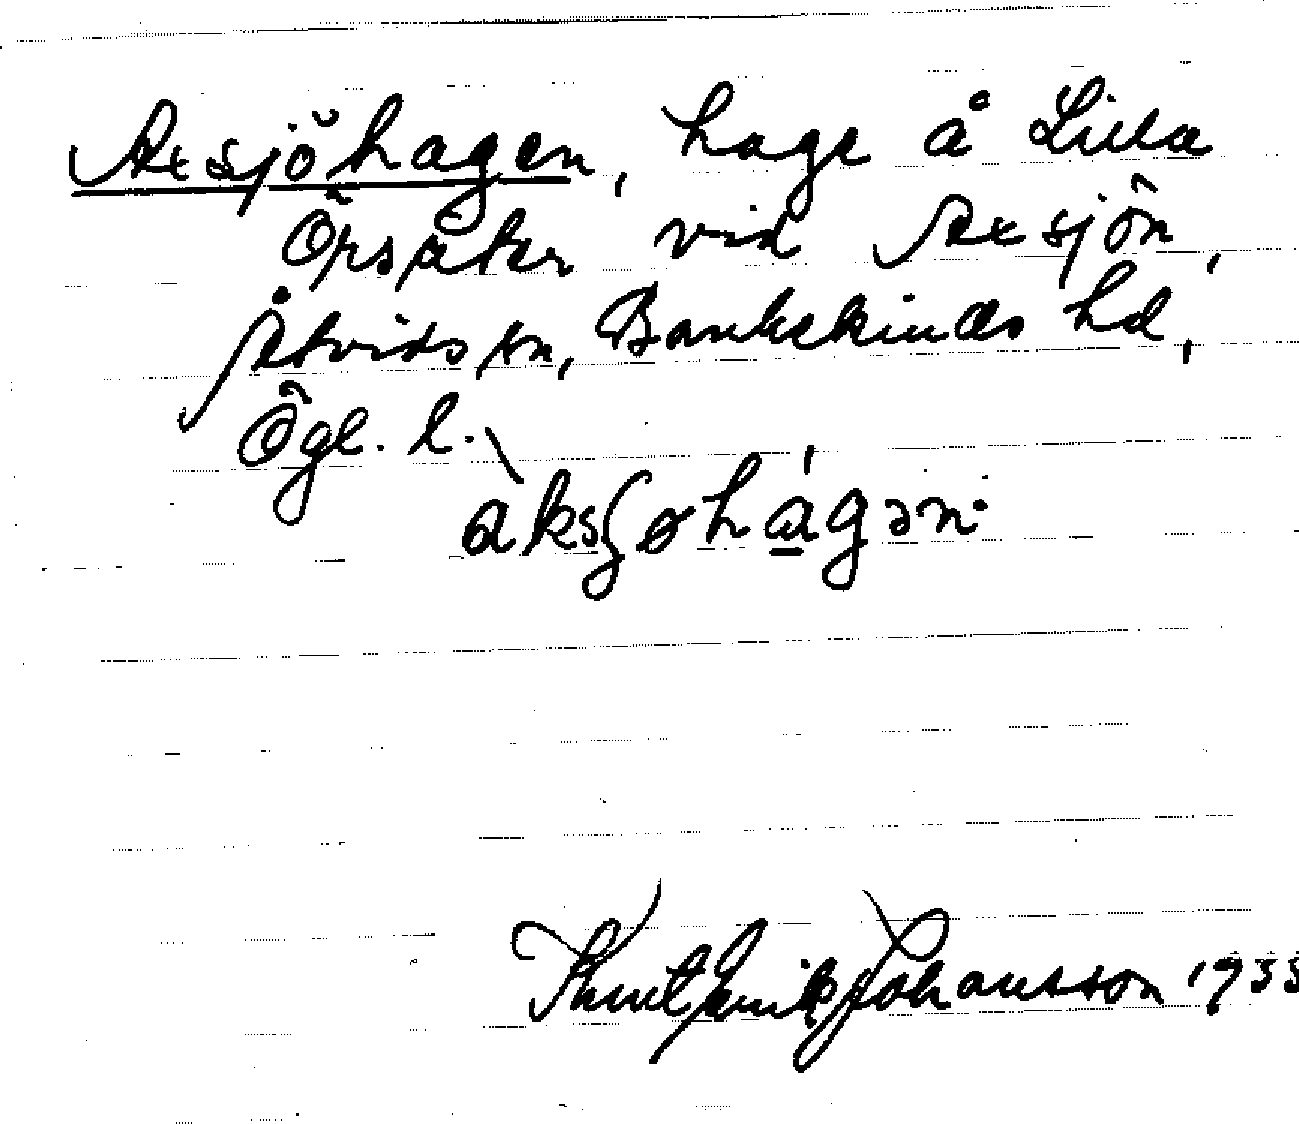 Axsjöhagen, hage å Lilla
Örsåter vid Axsjön,
Åtvids sn, Bankekinds hd,
Ögl. l.
Knut Erik Johansson 1933